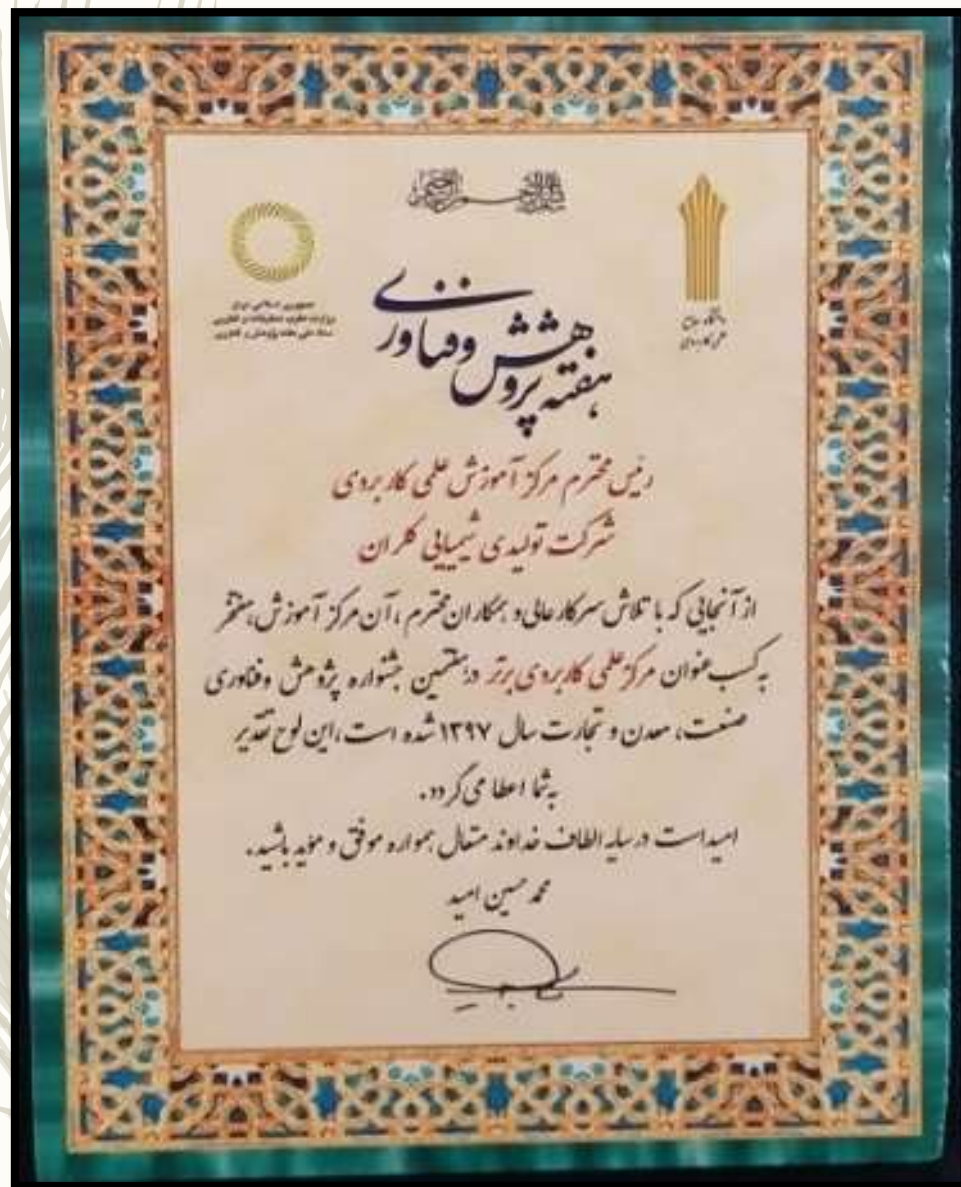 بسم الله الرحمن الرحیم
جمهوری اسلامی ایران
وزارت علوم، تحقیقات و فناوری
ستاد ملی هفته پژوهش و فناوری
دانشگاه جامع
علمی کاربردی
هفته پژوهش و فناوری
رئیس محترم مرکز آموزش علمی کاربردی
شرکت تولیدی شیمیایی کلران
از آنجایی که با تلاش سرکار عالی و همکاران محترم، آن مرکز آموزش، مفتخر
به کسب عنوان مرکز علمی کاربردی برتر در هفتمین جشنواره پژوهش و فناوری
صنعت، معدن و تجارت سال ۱۳۹۷ شده است، این لوح تقدیر
به شما اعطا می گردد.
امید است در سایه الطاف خداوند متعال همواره موفق و مؤید باشید.
محمد حسین امید